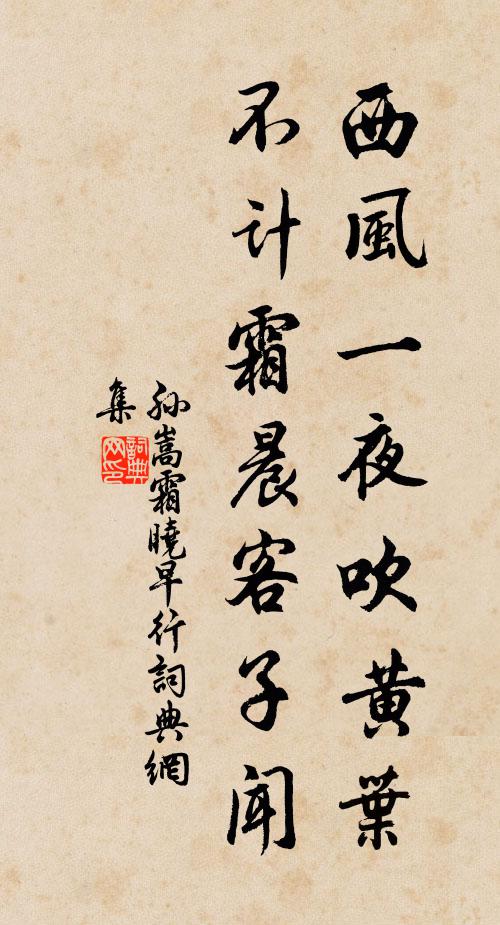 西風一夜吹黄葉
不计霜晨客子闻
孙嵩霜曉早行詞典網
集
詞典网印